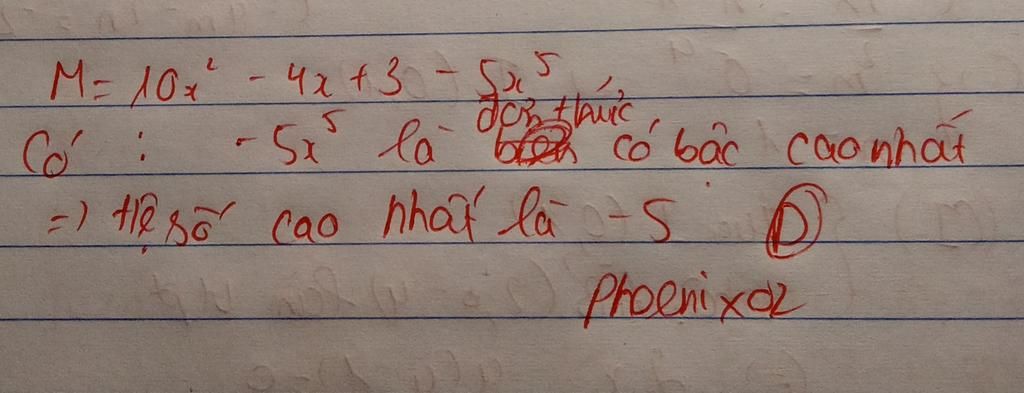 M = 10x² - 4x + 3 - 5x⁵
Có : - 5x⁵ là đơn thức có bậc cao nhất
=) Hệ số cao nhất là - 5 D
Phoenixdz